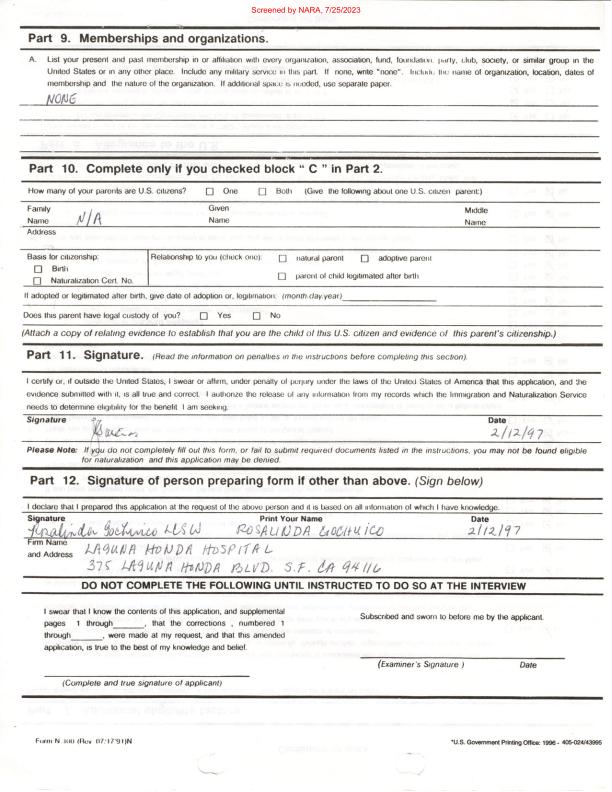 Screened by NARA, 7/25/2023
Part 9. Memberships and organizations.
A. List your present and past membership in or affiliation with every organization, association, fund, foundation, party, club, society, or similar group in the
United States or in any other place. Include any military service in this part. If none, write "none". Include the name of organization, location, dates of
membership and the nature of the organization. If additional space is needed, use separate paper.
NONE
Part 10. Complete only if you checked block " C " in Part 2.
How many of your parents are U.S. citizens? ☐ One ☐ Both (Give the following about one U.S. citizen parent:)
Family Given Middle
Name N/A Name Name
Address
Basis for citizenship: Relationship to you (check one): ☐ natural parent ☐ adoptive parent
☐ Birth
☐ Naturalization Cert. No. ☐ parent of child legitimated after birth
If adopted or legitimated after birth, give date of adoption or, legitimation: (month/day/year)
Does this parent have legal custody of you? ☐ Yes ☐ No
(Attach a copy of relating evidence to establish that you are the child of this U.S. citizen and evidence of this parent's citizenship.)
Part 11. Signature. (Read the information on penalties in the instructions before completing this section).
I certify or, if outside the United States, I swear or affirm, under penalty of perjury under the laws of the United States of America that this application, and the
evidence submitted with it, is all true and correct. I authorize the release of any information from my records which the Immigration and Naturalization Service
needs to determine eligibility for the benefit I am seeking.
Signature Date
2/12/97
Please Note: If you do not completely fill out this form, or fail to submit required documents listed in the instructions, you may not be found eligible
for naturalization and this application may be denied.
Part 12. Signature of person preparing form if other than above. (Sign below)
I declare that I prepared this application at the request of the above person and it is based on all information of which I have knowledge.
Signature Print Your Name Date
Rosalinda Gochuico LCSW ROSALINDA GOCHUICO 2/12/97
Firm Name
and Address LAGUNA HONDA HOSPITAL
375 LAGUNA HONDA BLVD. S.F. CA 94116
DO NOT COMPLETE THE FOLLOWING UNTIL INSTRUCTED TO DO SO AT THE INTERVIEW
I swear that I know the contents of this application, and supplemental
pages 1 through______, that the corrections , numbered 1
through______, were made at my request, and that this amended
application, is true to the best of my knowledge and belief.
(Complete and true signature of applicant)
Subscribed and sworn to before me by the applicant.
(Examiner's Signature ) Date
Form N-400 (Rev. 07/17/91)N *U.S. Government Printing Office: 1996 - 405-024/43995